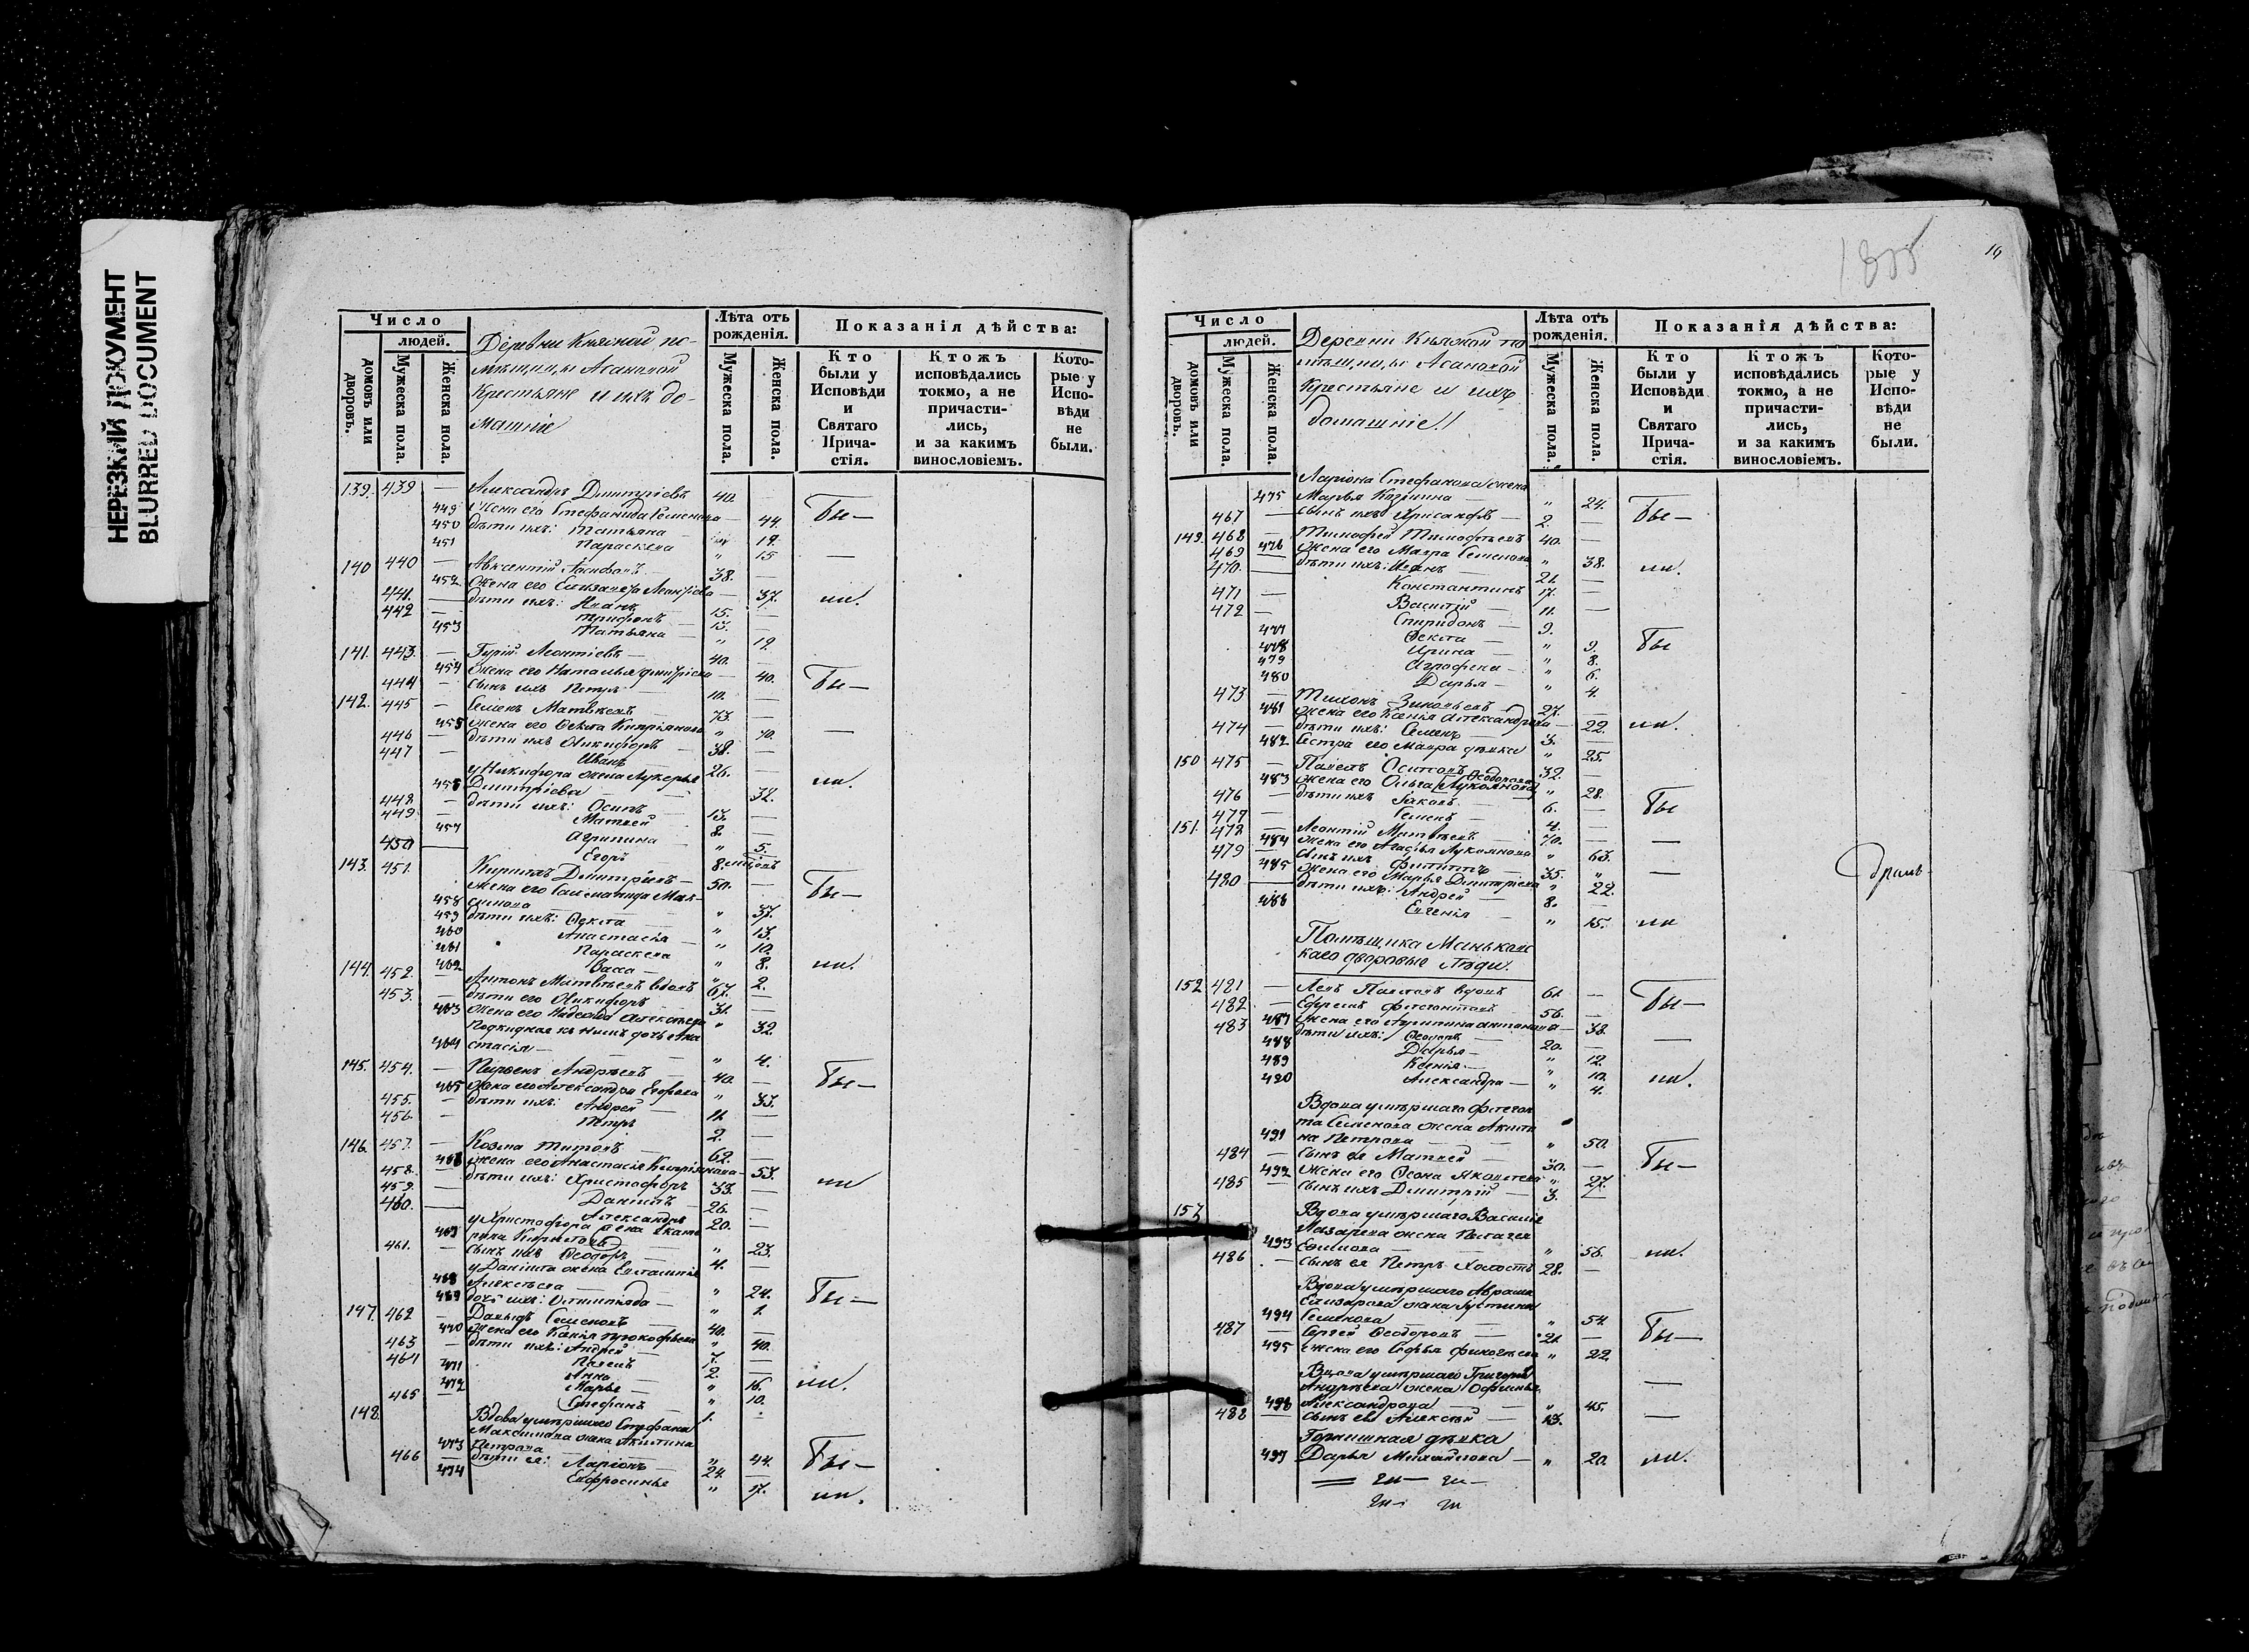 НЕРЕЗКИЙ ДОКУМЕНТ
BLURRED DOCUMENT
Число
людей.
домовъ или дворовъ.
Мужеска пола.
Женска пола.
Деревни Княжой по-
мѣщицы Асановой
Крестьяне и ихъ до-
машніе
Лѣта отъ рожденія.
Мужеска пола.
Женска пола.
Показанія дѣйства:
Кто были у Исповѣди и Святаго Прича-стія.
Ктожъ исповѣдались токмо, а не причасти-лись, и за какимъ винословіемъ.
Кото-рые у Испо-вѣди не были.
139. 439 — Александръ Дмитріевъ 40. —
449 Жена его Стефанида Семенова — 44. Бы—
450 дѣти ихъ: Татьяна — 19.
451 Параскева " 15 —
140 440 — Авксентій 38. —
452 Жена его Елизавета Леонтіева — 37. ли.
441. — дѣти ихъ: Иванъ 15. —
442 — Трифонъ — 13. —
453 Татьяна — " 19.
141. 443. — Гурій Леонтіевъ — 40. —
454 Жена его Наталья Дмитріева — 40. Бы—
444 — Сынъ ихъ Петръ — 10. —
142. 445 — Семенъ Матвѣевъ 73. —
455 Жена его Ѳекла Кипріянова " 70. —
446 — дѣти ихъ Никифоръ — 38. —
447 — Иванъ 26. —
у Никифора жена Лукерья
456 Дмитріева — 32. ли.
448. — дѣти ихъ: Осипъ — 13. —
449. — Матвей 8. —
457 Агрипина — " 5.
450 — Егоръ 8. мѣсяцовъ
143. 451. Кирилъ Дмитріевъ — 50. — Бы—
Жена его Мак-
458 симова — " 37.
459 дѣти ихъ: Ѳекла — " 13.
460 Анастасія — " 10.
461 Параскева " 8. ли.
462 Васса — " 2.
144. 452. — Антонъ Матвѣевъ вдовъ 67. —
453. — дѣти его Никифоръ 31. —
463 Жена его Надежда Алексѣева " 32.
Подкидная къ нимъ дочь Ана
464 стасія — " 4.
145. 454. — Парфенъ Андрѣевъ — 40. — Бы—
465 Жена его Александра Егорова " 33.
455. — дѣти ихъ: Андрей — 11. —
456. — Петръ 2. —
146. 457. — Козма Титовъ — 62. —
466 Жена его Анастасія Кипріянова — 53.
458. — дѣти ихъ: Христофоръ 33. — ли
459. — Даніилъ — 26. —
460. — Александръ 20. —
у Христофора жена Екате
467 рина Кирилова — " 23.
461. — Сынъ ихъ Ѳеодоръ — 4. —
у Даніила жена Евлампія
468 Алексѣева — " 24. Бы—
469 дочь ихъ: Олимпіяда — " 1.
147. 462 — Давыдъ Семеновъ — 40. —
470 Жена его Ксенія Прокофьева " 40.
463 — дѣти ихъ: Андрей — 7. —
464 Павелъ 2. —
471 Анна — " 16. ли.
472 Марья — " 10.
465 — Стефанъ — 1.
148. Вдова умершаго Стефана
Максимова жена Акилина
473 Петрова — " 44. Бы—
466 — дѣти ея: Ларіонъ — 24. —
474 Евфросинья " 17. ли.
1855
14
Число
людей.
домовъ или дворовъ.
Мужеска пола.
Женска пола.
Деревни Княжой по
мѣщицы Асановой
Крестьяне и ихъ
домашніе!!
Лѣта отъ рожденія.
Мужеска пола.
Женска пола.
Показанія дѣйства:
Кто были у Исповѣди и Святаго Прича-стія.
Ктожъ исповѣдались токмо, а не причасти-лись, и за какимъ винословіемъ.
Кото-рые у Испо-вѣди не были.
Ларіона Стефанова жена
475 Марья Козмина — " 24. Бы—
467 — сынъ ихъ Хрисанфъ — 2. —
149. 468 — Тимофей Тимофѣевъ 40. —
476 Жена его Мавра Семенова " 38. ли.
469 — дѣти ихъ: Иванъ — 21. —
470. — Константинъ 17. —
471 — Василій — 11. —
472 — Спиридонъ — 9.
477 Ѳекла — " 9. Бы
478 Ирина — " 8.
479 Аграфена — " 6.
480 Дарья — " 4.
473 — Тихонъ Зиновьевъ — 27. —
481 Жена его Ксенія Александрова — 22. ли.
474 — дѣти ихъ: Семенъ — 3. —
482 Сестра его Мавра дѣвка " 25.
150 475 — Павелъ Осиповъ 32. —
483 Жена его Ольга Ѳеодорова " 28.
476 — дѣти ихъ Яковъ — 6. — Бы
477 — Семенъ — 4. —
151. 478 — Леонтій Матвѣевъ 70. — —
484 Жена его Агафья Лукоянова " 63.
479 — сынъ ихъ Филиппъ — 35. " —
485 Жена его Марья Дмитріева " 22.
480 — дѣти ихъ: Андрей — 8. —
486 Евгенія — " 15. ли
Помѣщика Маньковс
каго дворовые Люди.
152 481 — Левъ Павловъ вдовъ 61 — Бы—
482 — Ефремъ Флегонтовъ 56. —
487 Жена его Агрипина Антонова — 38.
483 — дѣти ихъ: Ѳеодоръ — 20. — —
488 Дарья — " 12.
489 Ксенія — " 10. ли.
490 Александра — " 4.
Вдова умершаго Флегон
та Семенова жена Акили
491 на Петрова — " 50.
484 — сынъ ея Матвей — 30. — Бы—
492 Жена его Ѳеона Яковлева " 27.
485 — сынъ ихъ Дмитрій — 3. —
153 Вдова умершаго Василія
Лазарева жена Пелагея
493 Ефимова — " 56. ли.
486 — сынъ ея Петръ Холостъ 28. —
Вдова умершаго Аврама
Елизарова жена Іустина
494 Семенова — " 54.
487 — Сергей Ѳеодоровъ — 21. — Бы—
495 Жена его Софья " 22
Вдова умершаго Григорія
Андрѣева жена Офимья —
496 Александрова — " 45.
488 — сынъ ея Алексѣй — 13. —
Горнишная дѣвка
497 Дарья Михайлова — " 20. ли.